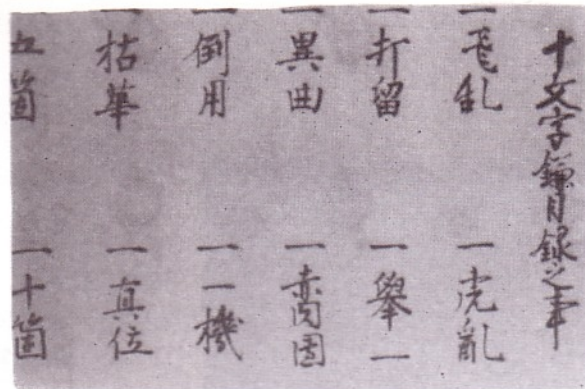 十文字鎌目録之事
一飛乱 一虎亂
一打留 一擧一
一異曲 一赤肉團
一倒用 一一機
一拈華 一真位
五箇 一十箇